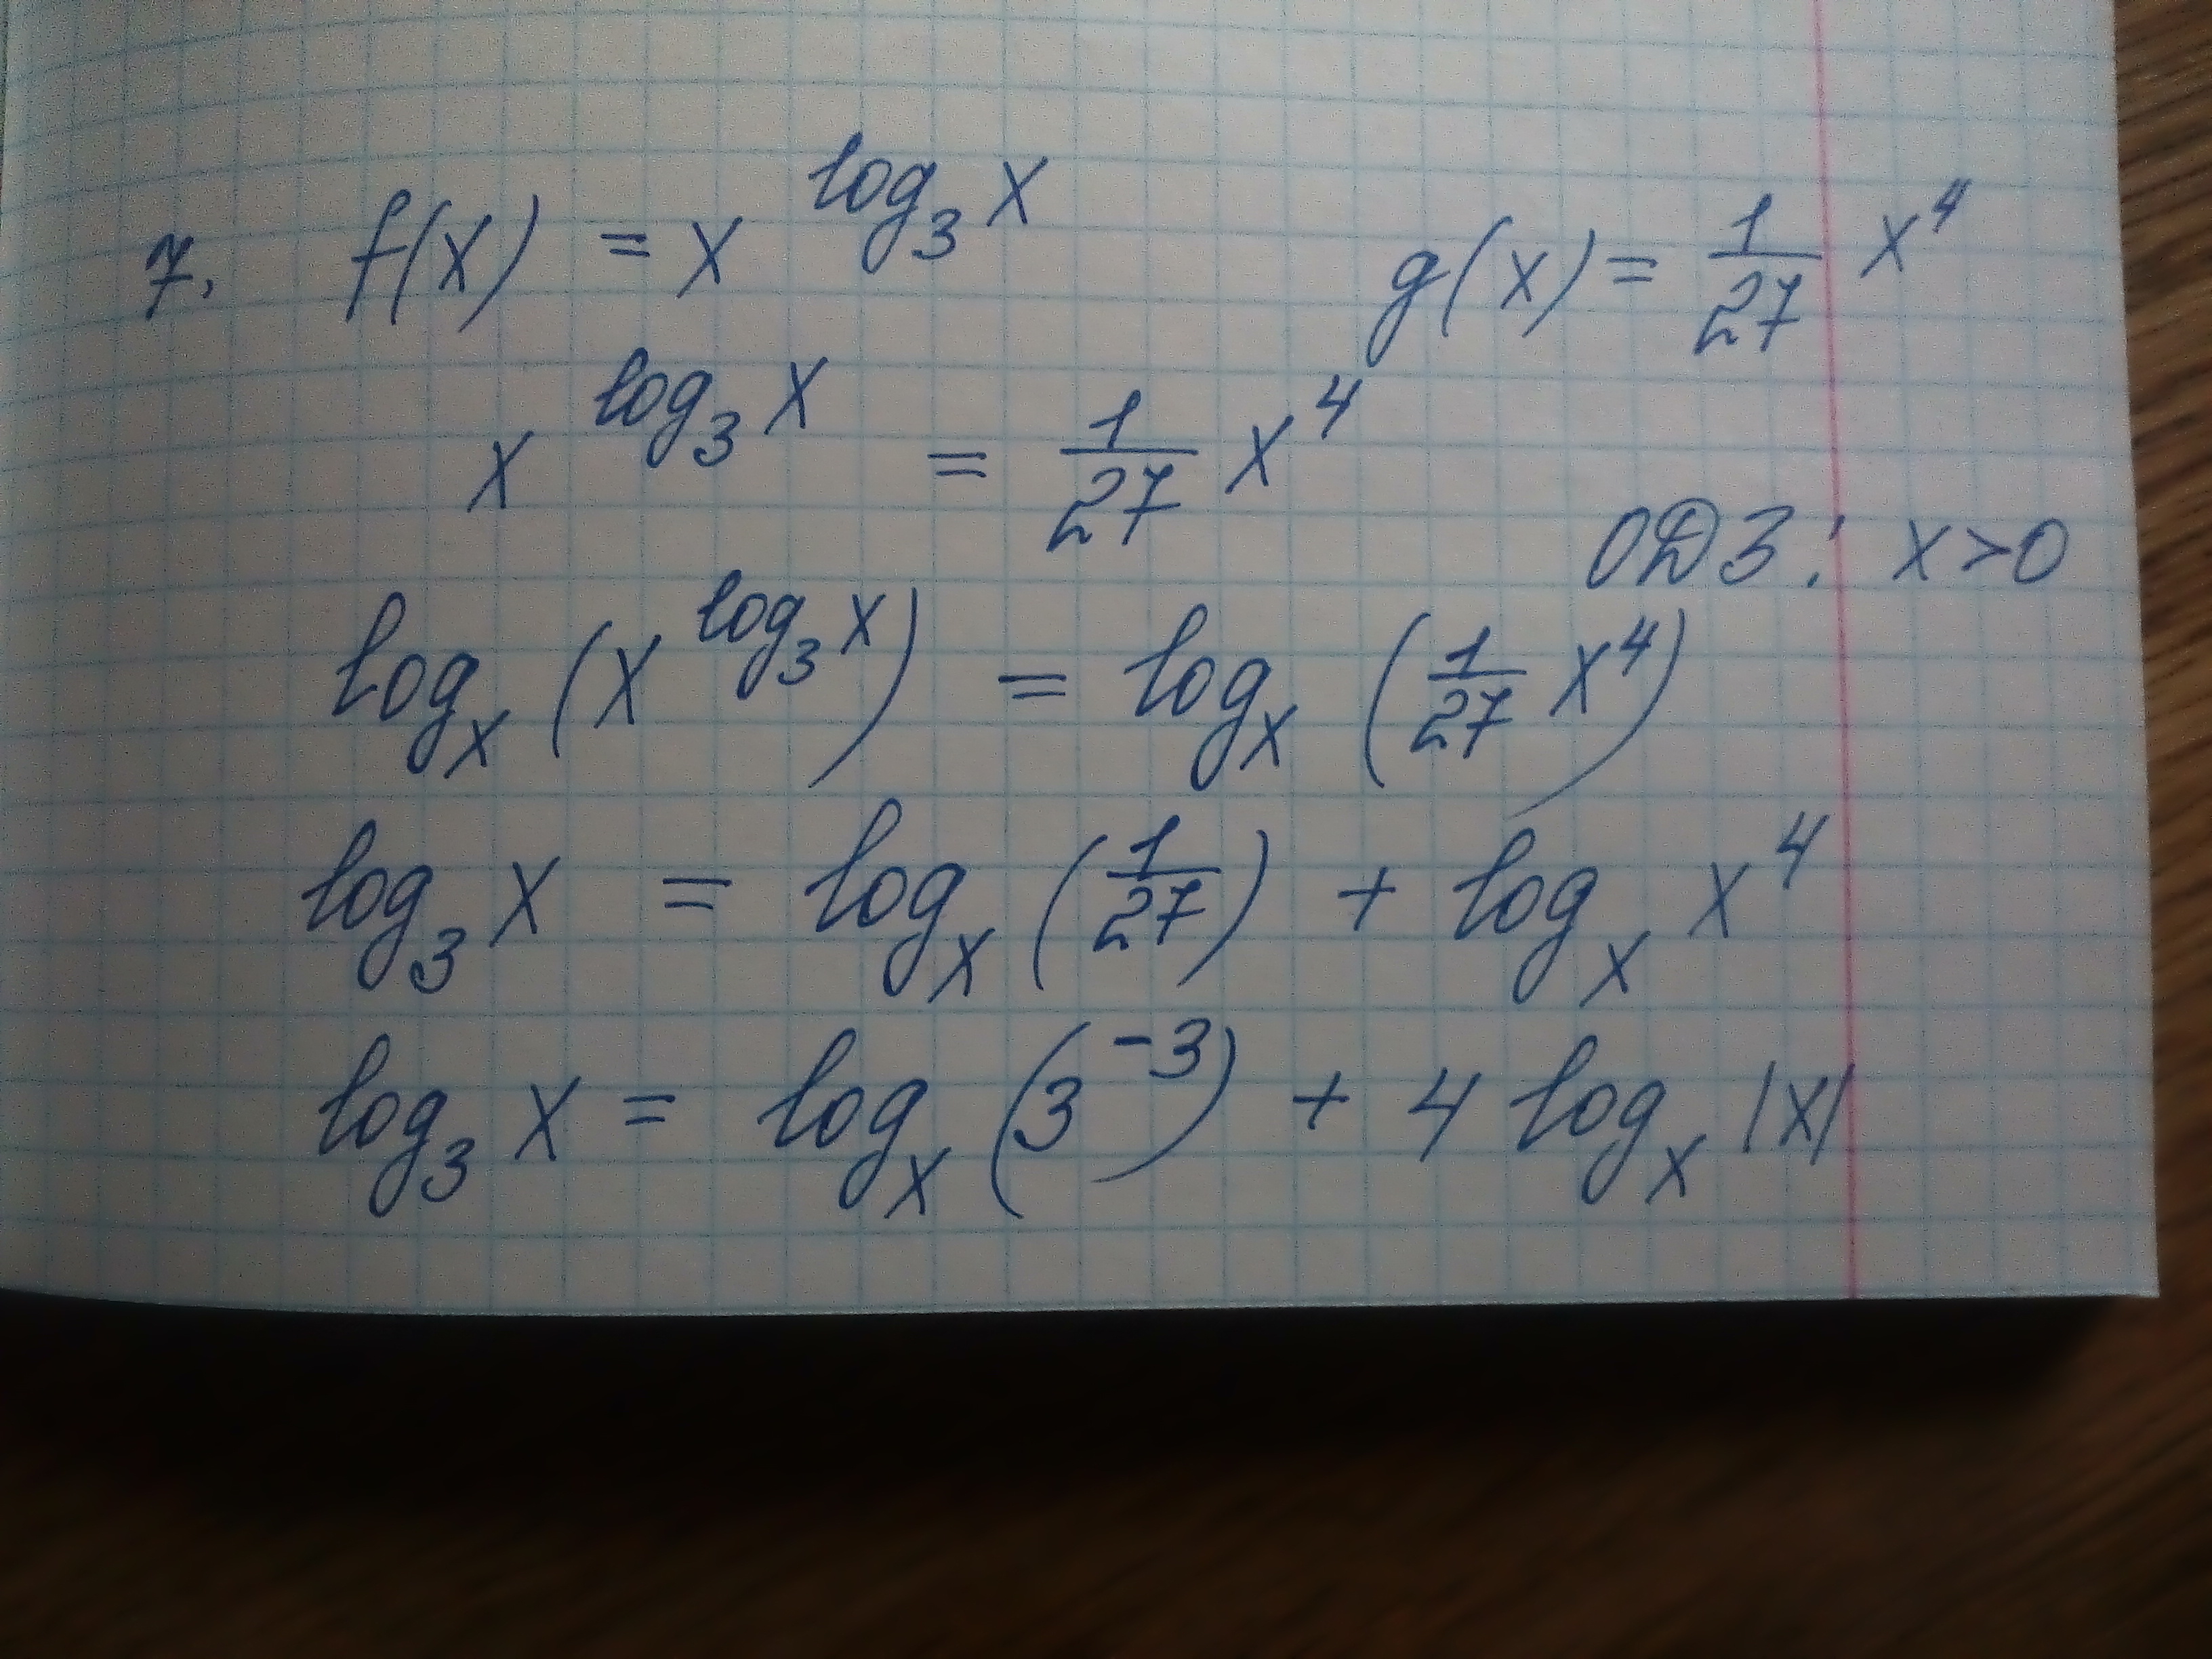 7. f(x) = x^{log_3 x} g(x) = \frac{1}{27} x^4
x^{log_3 x} = \frac{1}{27} x^4
ОДЗ: x>0
log_x (x^{log_3 x}) = log_x (\frac{1}{27} x^4)
log_3 x = log_x (\frac{1}{27}) + log_x x^4
log_3 x = log_x (3^{-3}) + 4 log_x |x|